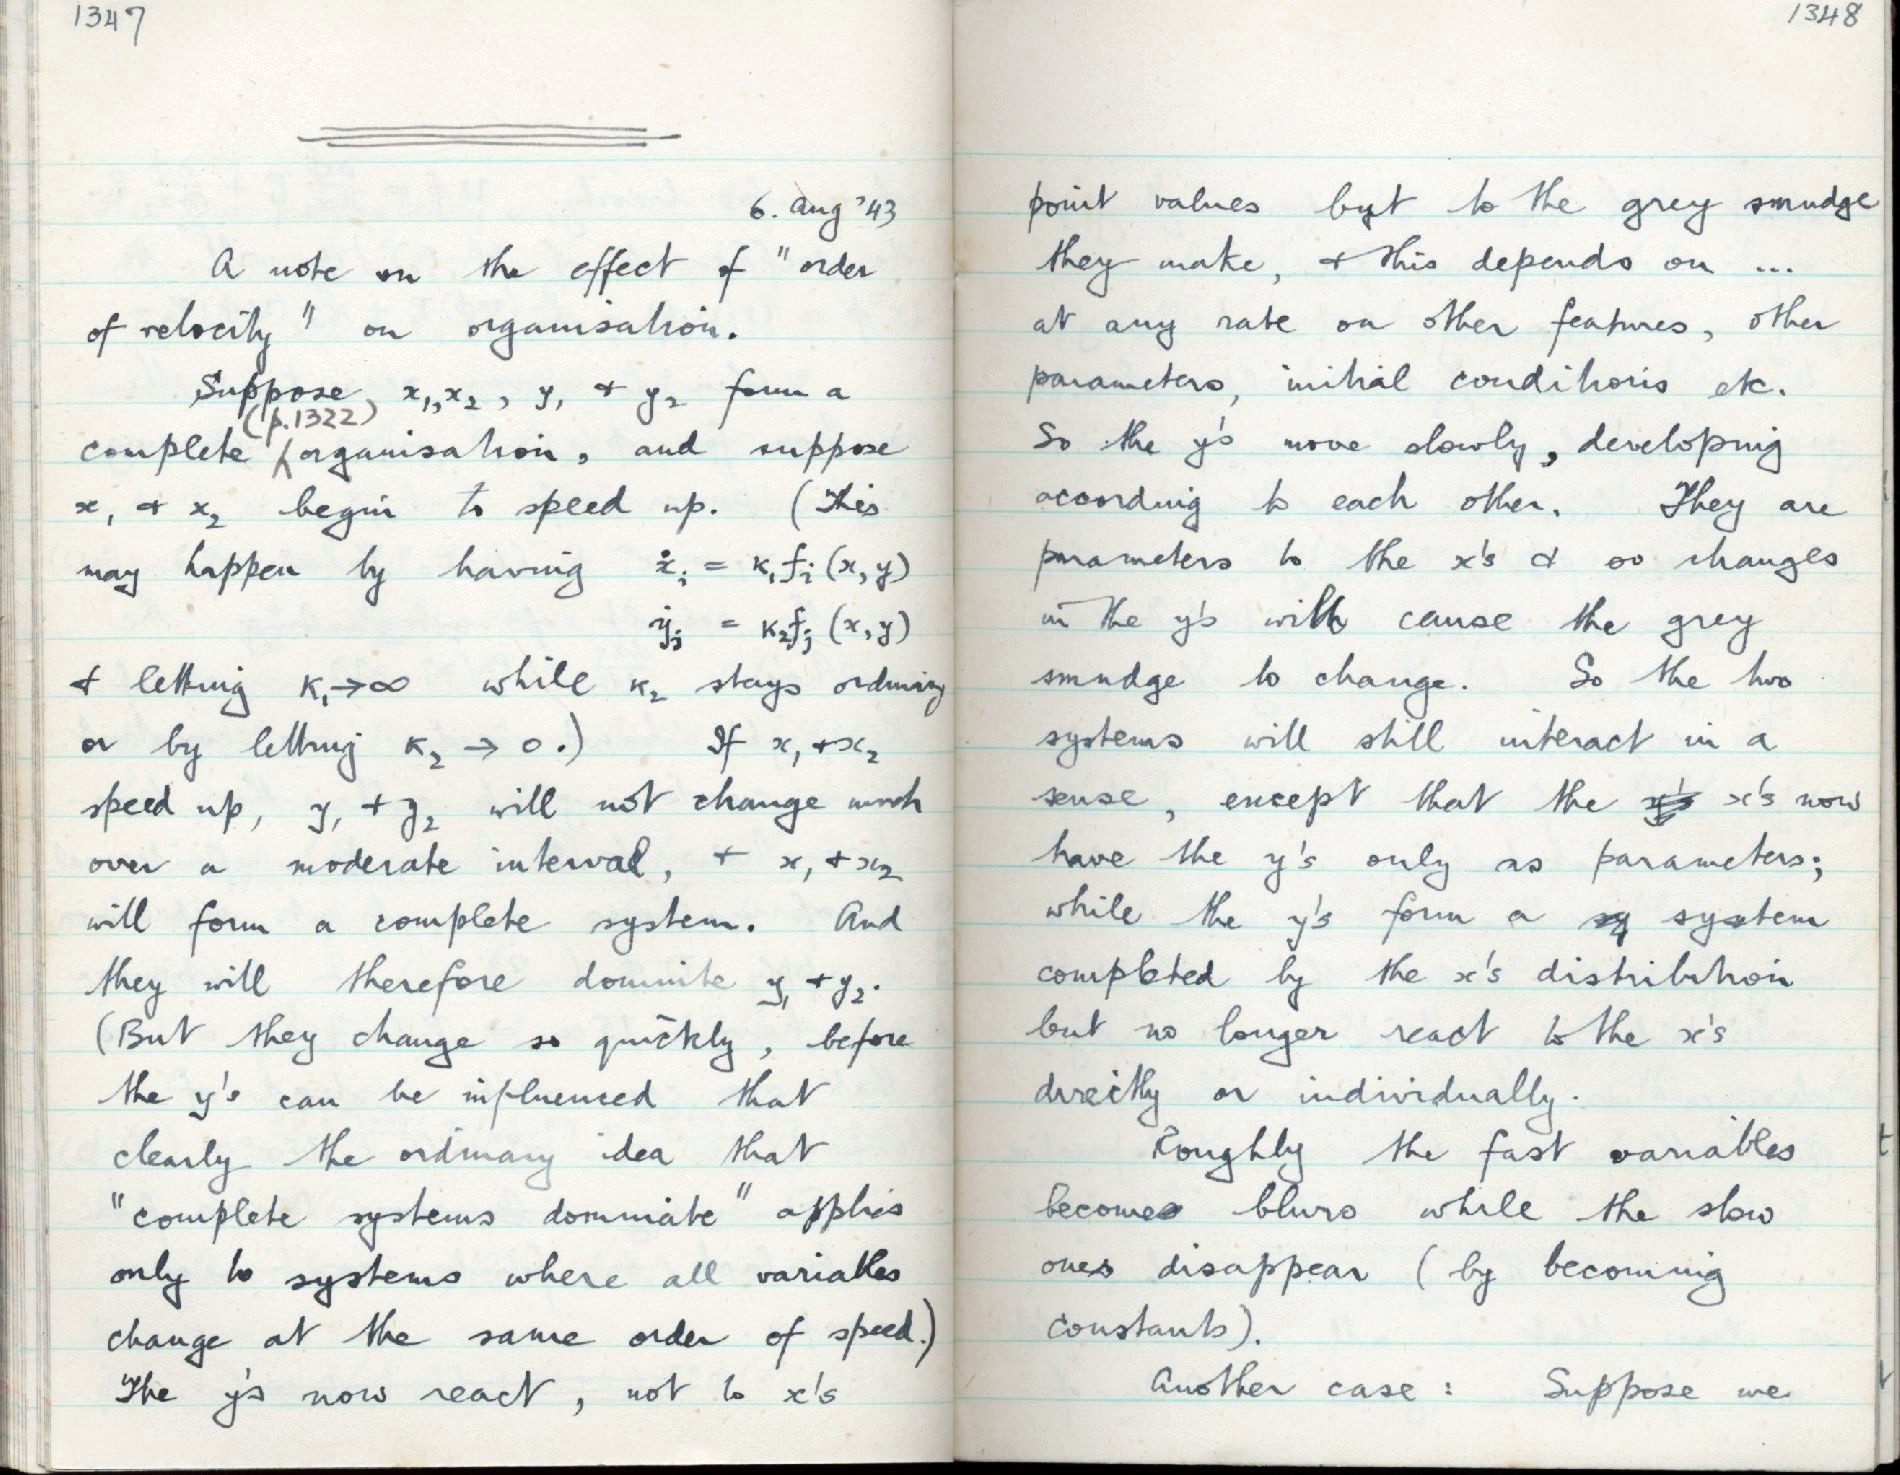 1347
6. Aug '43
A note on the effect of "order
of velocity" on organisation.
Suppose x₁, x₂, y₁ & y₂ form a
(p.1322)
complete organisation, and suppose
x₁ & x₂ begin to speed up. (This
may happen by having ẋᵢ = κ₁fᵢ(x,y)
ẏⱼ = κ₂fⱼ(x,y)
& letting κ₁→∞ while κ₂ stays ordinary
or by letting κ₂ → 0.) If x₁ & x₂
speed up, y₁ & y₂ will not change much
over a moderate interval, & x₁ & x₂
will form a complete system. And
they will therefore dominate y₁ & y₂.
(But they change so quickly, before
the y's can be influenced that
clearly the ordinary idea that
"complete systems dominate" applies
only to systems where all variables
change at the same order of speed.)
The y's now react, not to x's
1348
point values but to the grey smudge
they make, & this depends on ...
at any rate on other features, other
parameters, initial conditions etc.
So the y's move slowly, developing
according to each other. They are
parameters to the x's & so changes
in the y's will cause the grey
smudge to change. So the two
systems will still interact in a
sense, except that the x's now
have the y's only as parameters;
while the y's form a system
completed by the x's distribution
but no longer react to the x's
directly or individually.
Roughly the fast variables
become blurs while the slow
ones disappear (by becoming
constants).
Another case: Suppose we